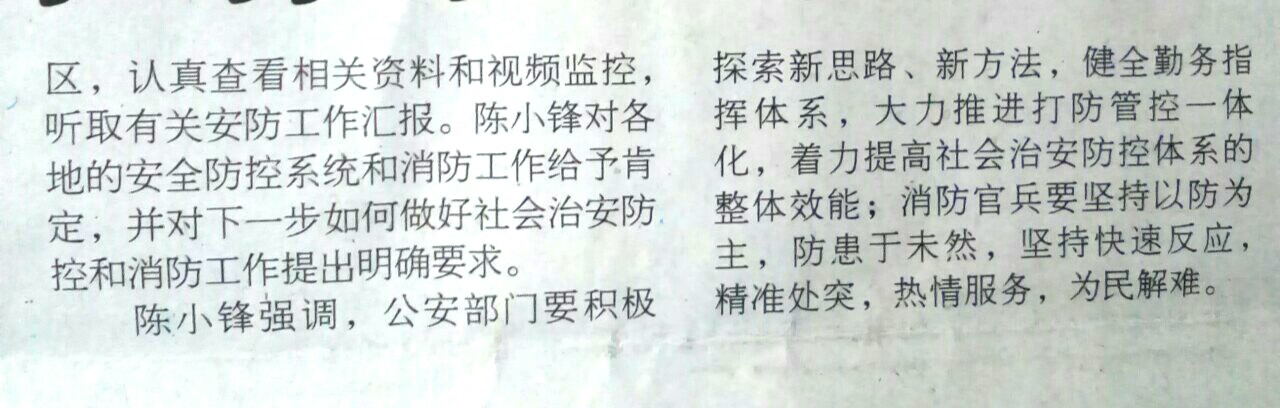 区，认真查看相关资料和视频监控，
听取有关安防工作汇报。陈小锋对各
地的安全防控系统和消防工作给予肯
定，并对下一步如何做好社会治安防
控和消防工作提出明确要求。
陈小锋强调，公安部门要积极
探索新思路、新方法，健全勤务指
挥体系，大力推进打防管控一体
化，着力提高社会治安防控体系的
整体效能；消防官兵要坚持以防为
主，防患于未然，坚持快速反应，
精准处突，热情服务，为民解难。